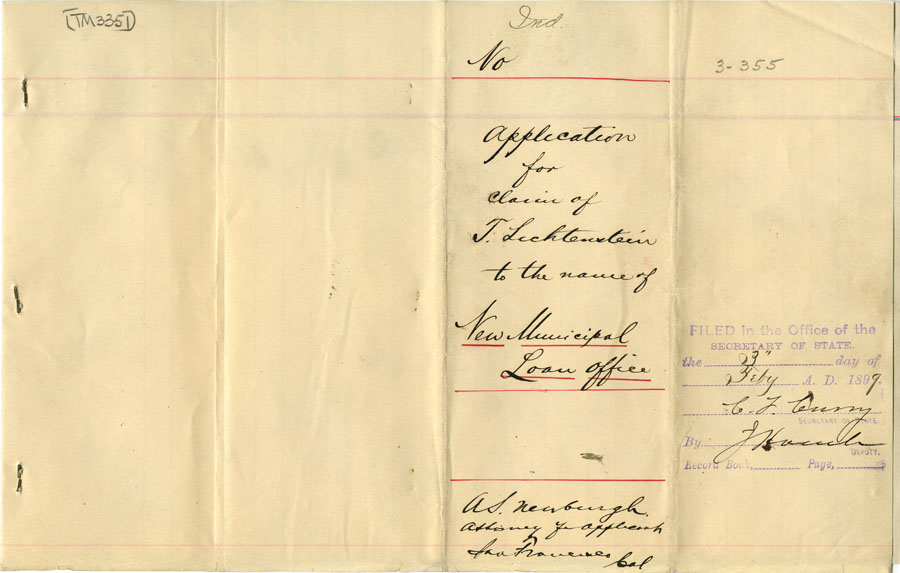 [TM3351]
Ind.
No
3-355
Application
for
claim of
T. Lichtenstein
to the name of
New Municipal
Loan office
FILED in the Office of the
SECRETARY OF STATE.
the 23" day of
Feby A. D. 1899.
C. F. Curry
SECRETARY OF STATE.
By
DEPUTY.
Record Book, Page,
A.S. Newburgh.
Attorney for applicant
San Francisco
Cal